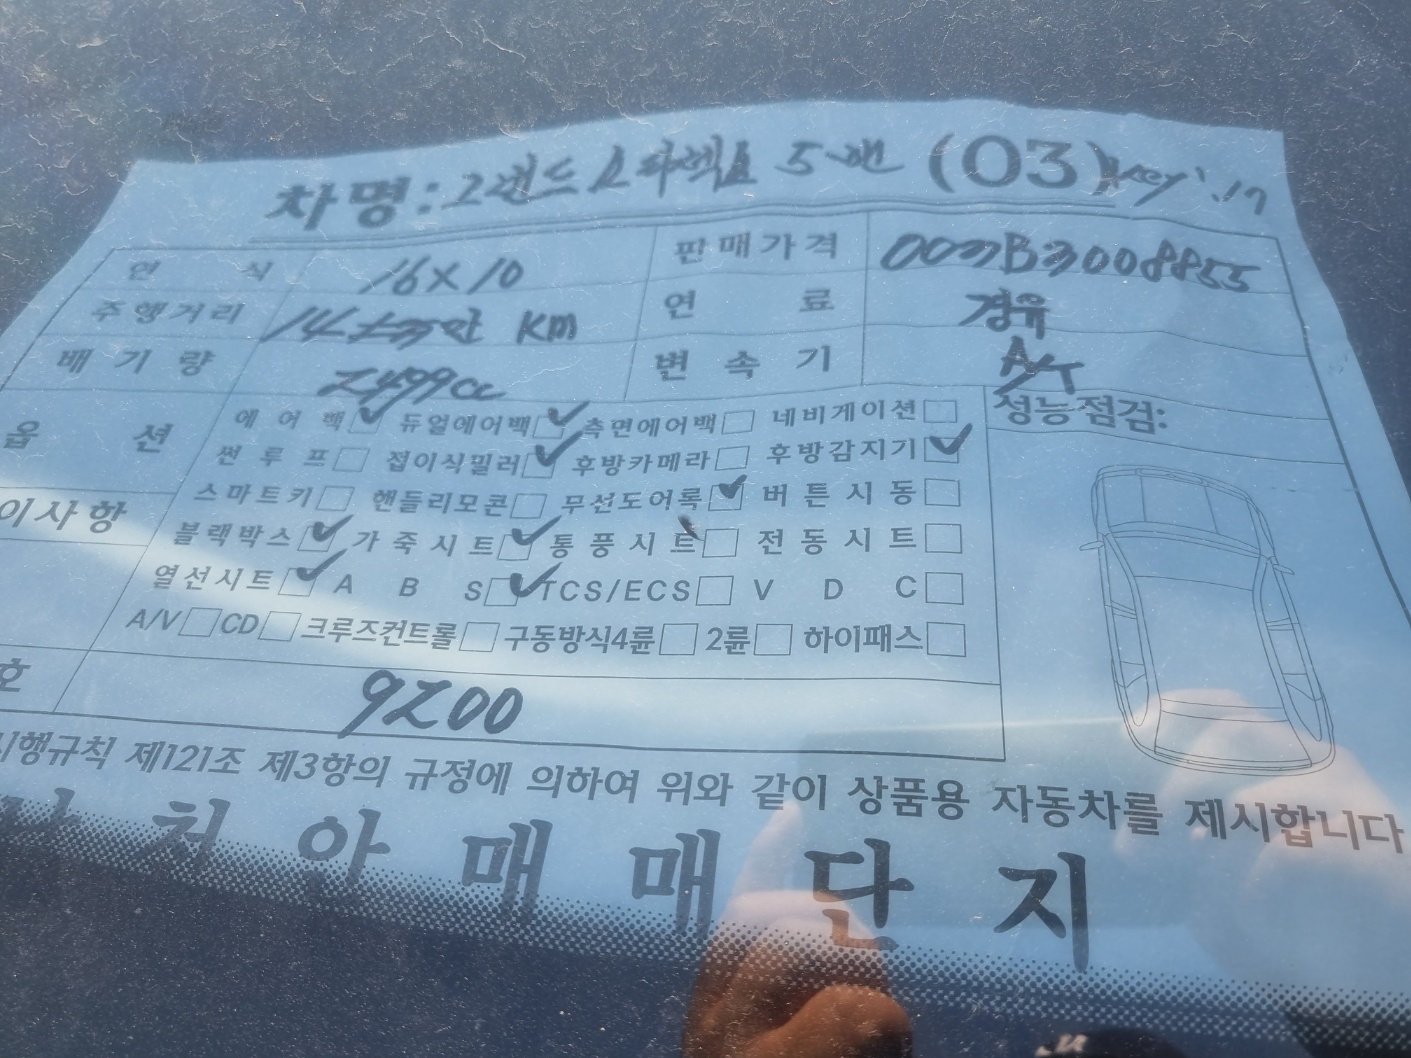 차명: 그랜드 스타렉스 5밴 (03) key '.17
연 식 16X10 판매가격 003B3008855
주행거리 14 만 KM 연 료 경유
배 기 량 2499cc 변 속 기 A/T
옵 션 에 어 백 듀얼에어백 측면에어백 네비게이션 성능점검:
썬 루 프 접이식밀러 후방카메라 후방감지기
스마트키 핸들리모콘 무선도어록 버 튼 시 동
이사항 블랙박스 가 죽 시 트 통 풍 시 트 전 동 시 트
열선시트 A B S TCS/ECS V D C
A/V CD 크루즈컨트롤 구동방식4륜 2륜 하이패스
호 9200
시행규칙 제121조 제3항의 규정에 의하여 위와 같이 상품용 자동차를 제시합니다
천 안 매 매 단 지